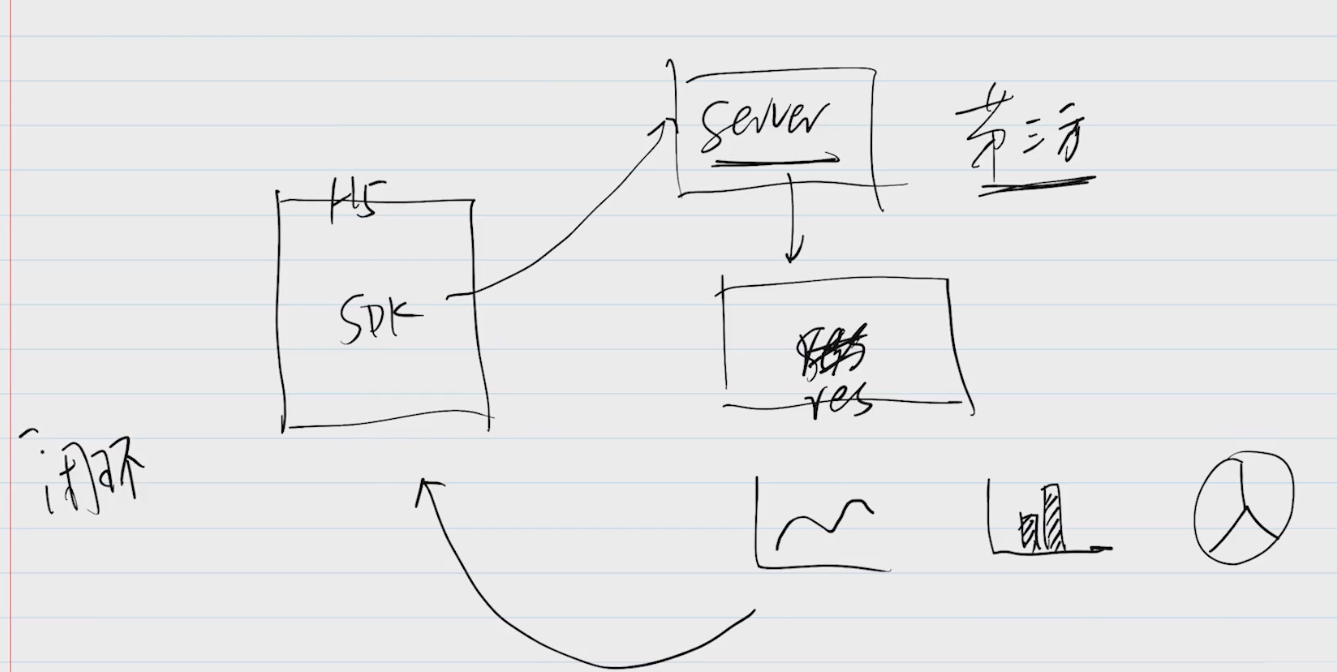 Server
第三方
H5
SDK
res
闭环